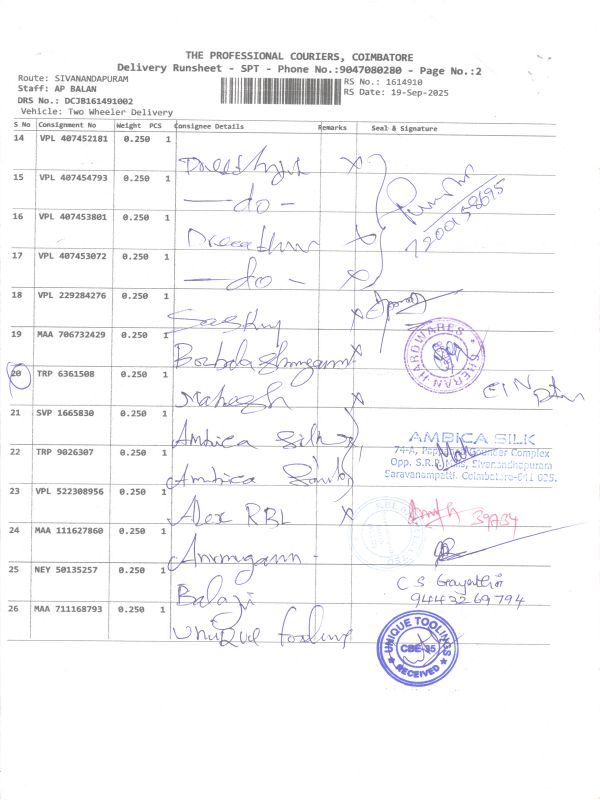 THE PROFESSIONAL COURIERS, COIMBATORE
Delivery Runsheet - SPT - Phone No.:9047080280 - Page No.:2
Route: SIVANANDAPURAM
RS No.: 1614910
Staff: AP BALAN
RS Date: 19-Sep-2025
DRS No.: DCJB161491002
Vehicle: Two Wheeler Delivery
S No Consignment No Weight PCS Consignee Details Remarks Seal & Signature
14 VPL 407452181 0.250 1
15 VPL 407454793 0.250 1 — do -
16 VPL 407453801 0.250 1
7200158695
17 VPL 407453072 0.250 1 — do -
18 VPL 229284276 0.250 1
19 MAA 706732429 0.250 1
SHERAN HARDWARES
20 TRP 6361508 0.250 1 Mahesh
21 SVP 1665830 0.250 1 Ambica Silk
AMBICA SILK
74-A, Gounder Complex
Opp. S.R.P. Mills, Sivanandhapuram
Saravanampatti, Coimbatore-641 035.
22 TRP 9026307 0.250 1 Ambica
23 VPL 522308956 0.250 1 Alex RBL
39734
24 MAA 111627860 0.250 1
25 NEY 50135257 0.250 1 Balaji
9443269794
26 MAA 711168793 0.250 1 Unique Tooling
UNIQUE TOOLINGS
CBE-35
RECEIVED